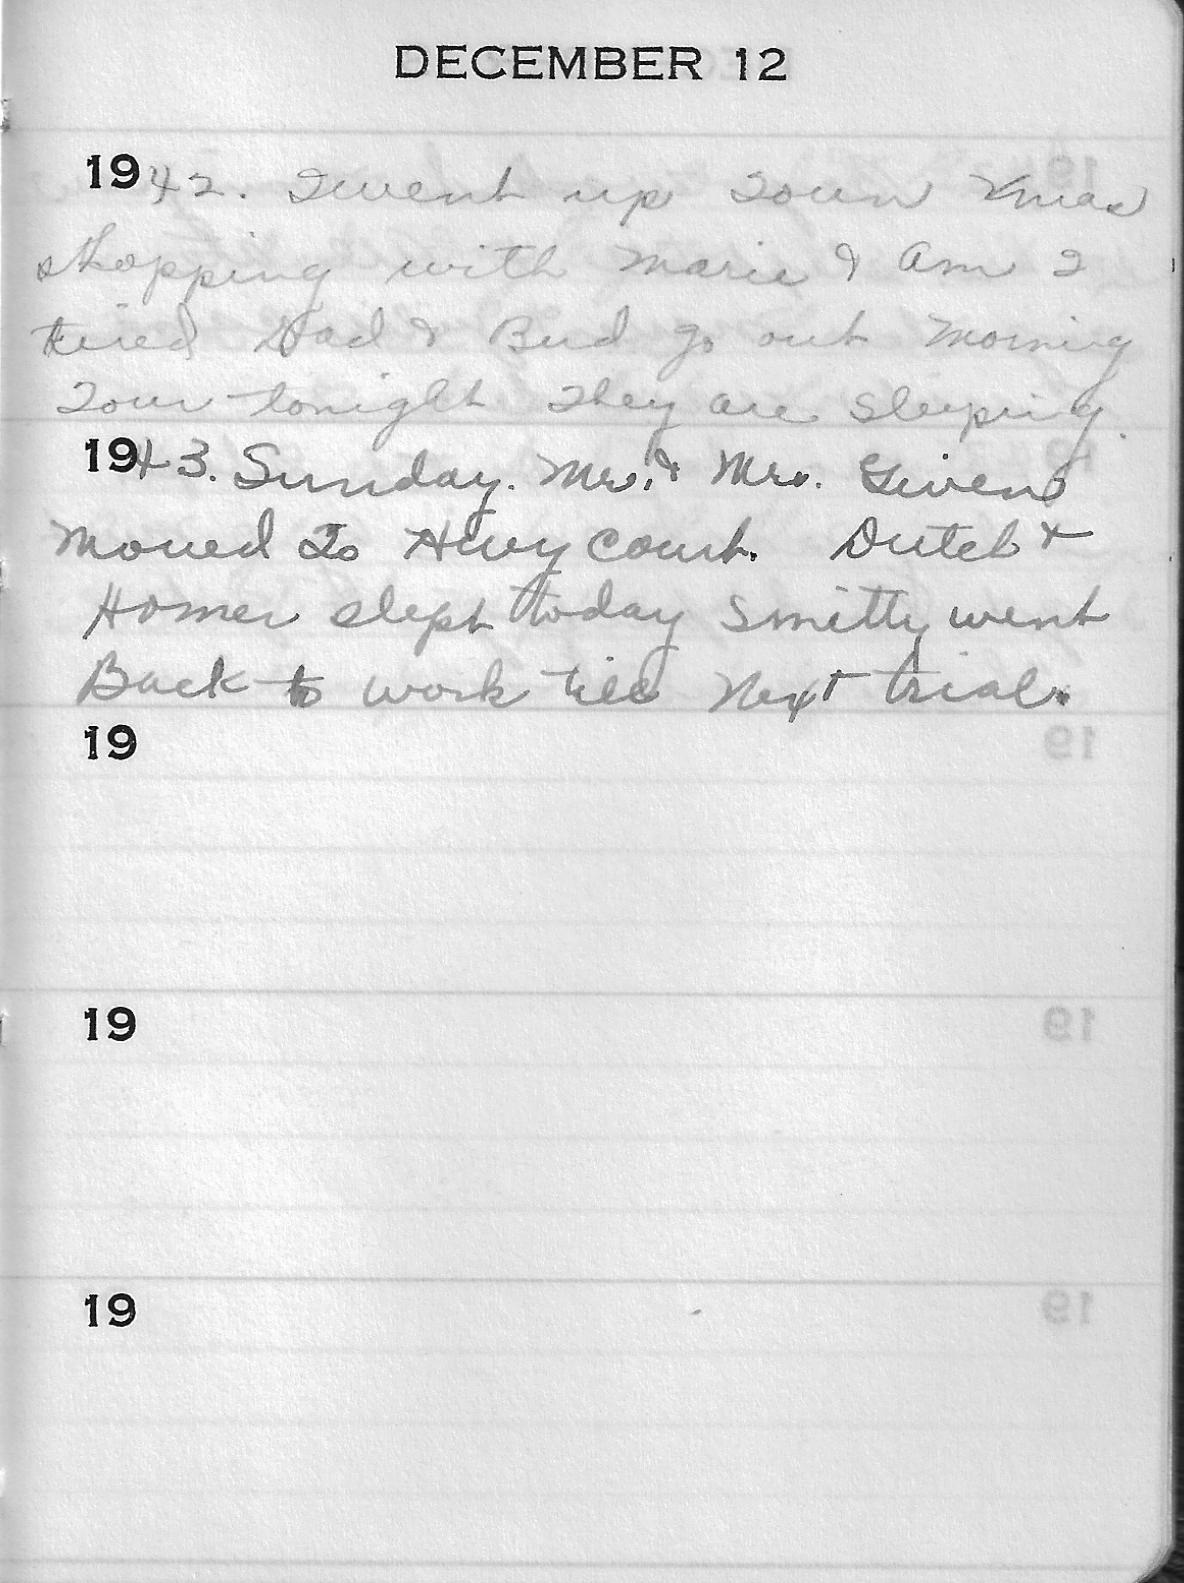 DECEMBER 12
1942. I went up Town Xmas
shopping with Marie & Am I
tired Dad & Bud go out Morning
Tour tonight They are sleeping.
1943. Sunday. Mr. & Mrs. Givens
Moved To Hiwy Court. Dutch &
Homer slept today Smitty went
Back to work till Next trial.
19
19
19